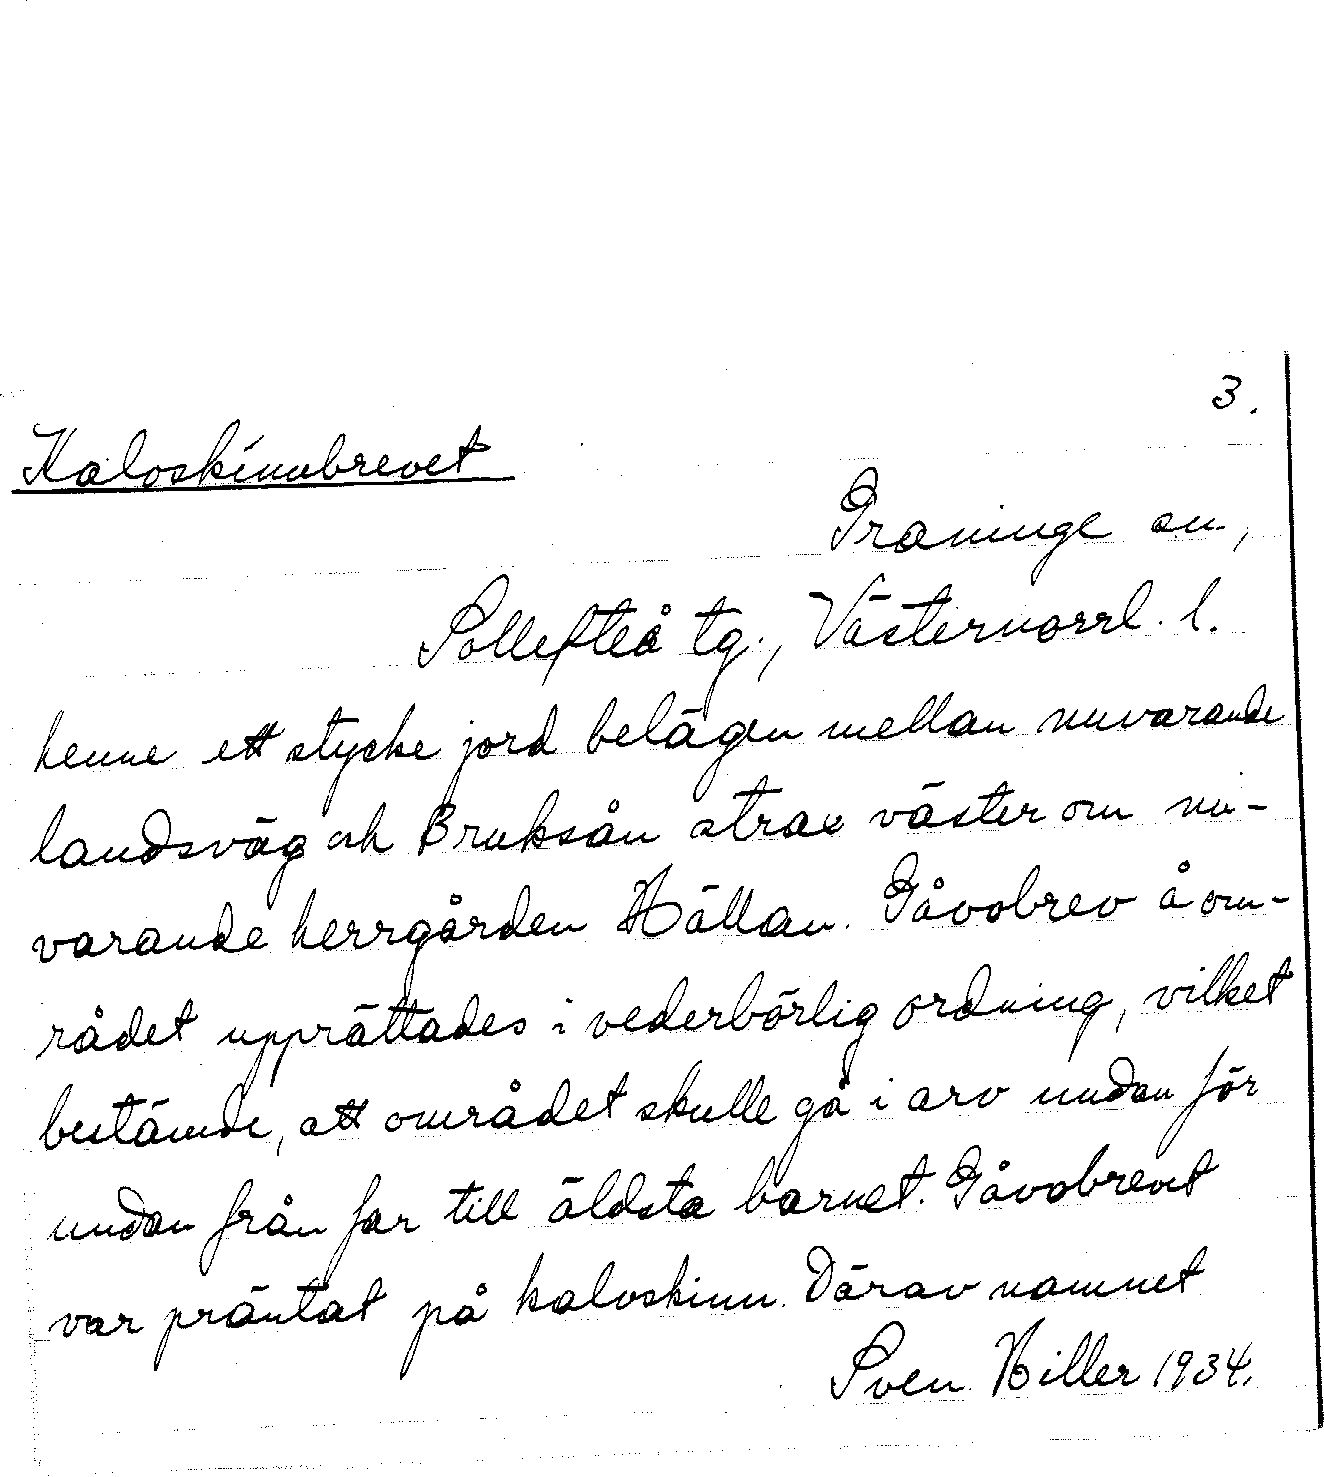 3.
Kalvskinnbrevet
Graninge sn.,
Sollefteå tg., Västernorrl. l.
henne ett stycke jord belägen mellan nuvarande
landsväg och Bruksån strax väster om nu-
varande herrgården Hällan. Gåvobrev å om-
rådet upprättades i vederbörlig ordning, vilket
bestämde, att området skulle gå i arv undan för
undan från far till äldsta barnet. Gåvobrevet
var präntat på kalvskinn. Därav namnet
Sven Hiller 1934.